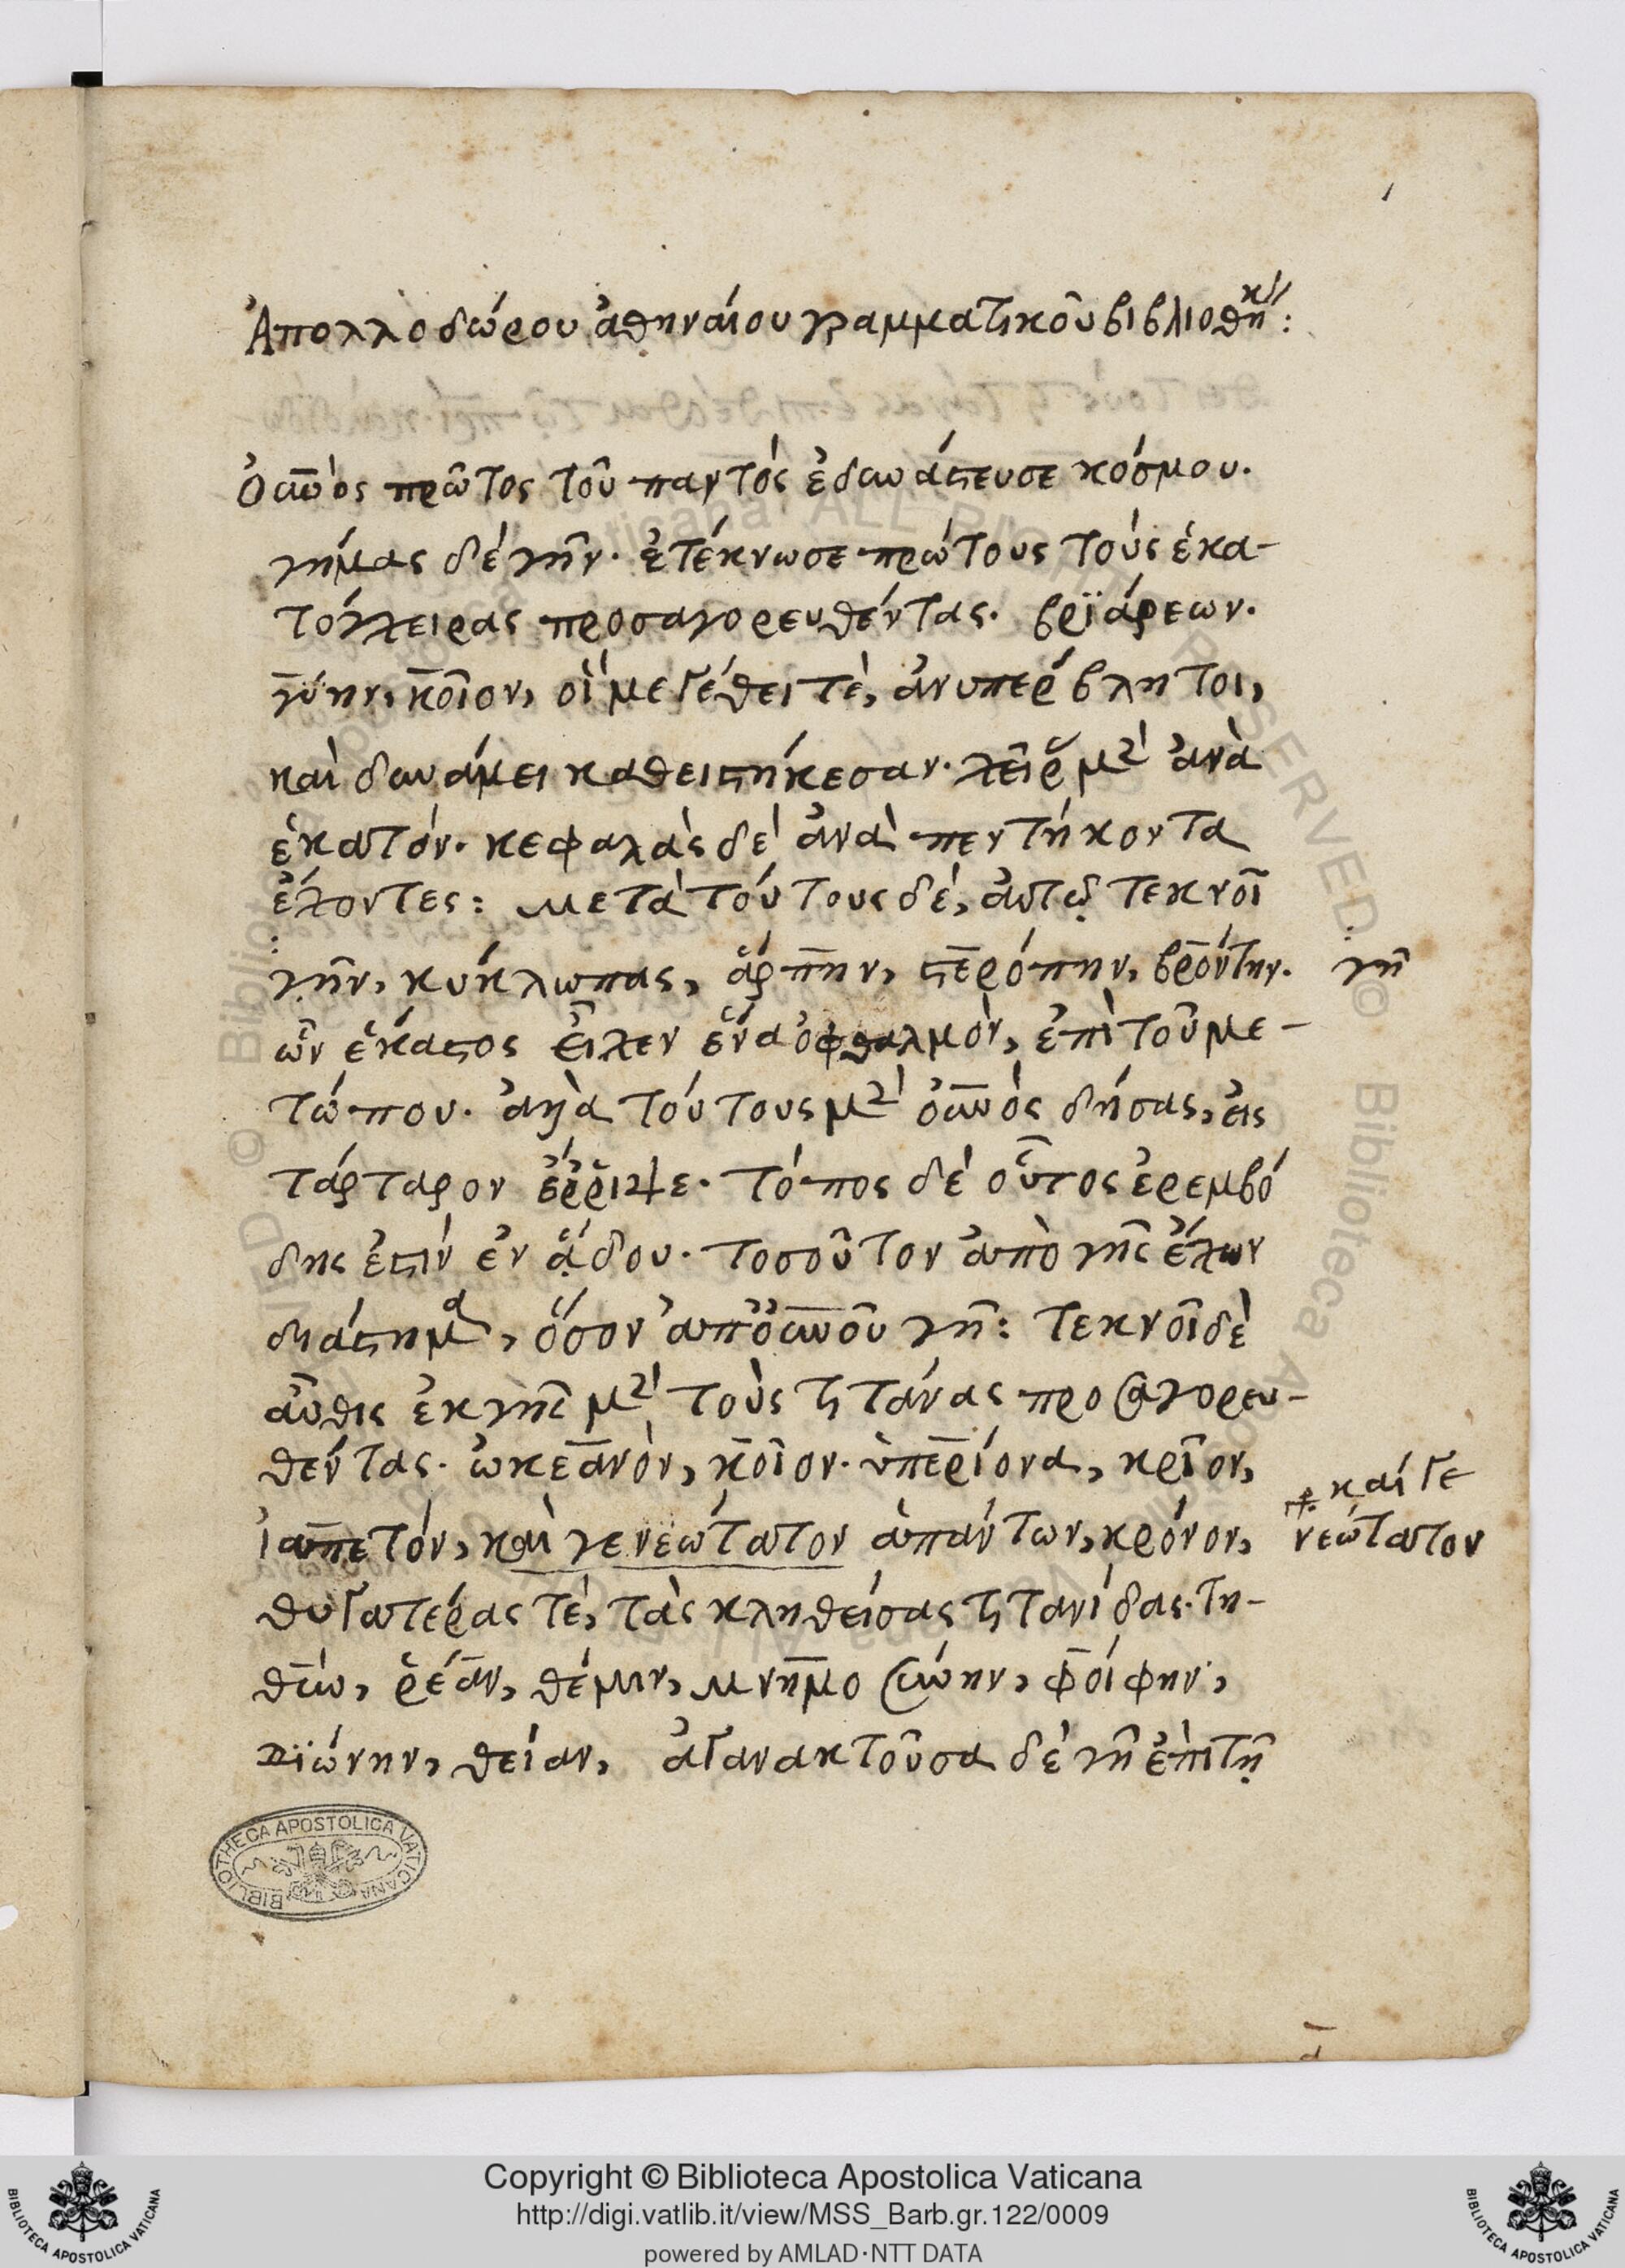 Ἀπολλοδώρου ἀθηναίου γραμματικοῦ βιβλιοθηκ:
Ὀυνὸς πρῶτος τοῦ παντός ἐδυνάστευσε κόσμου.
γήμας δέ γῆν. ἐτέκνωσε πρώτους τούς ἑκα-
τόγχειρας προσαγορευθέντας. βρϊάρεων.
γύην, κοῖον, οἳ μεγέθει τὲ, ἀνυπέρβλητοι,
καὶ δυνάμει καθειστήκεσαν. χεῖρ μ ἀνὰ
ἑκατόν. κεφαλὰς δὲ ἀνὰ πεντήκοντα
ἔχοντες: μετὰ τούτους δέ, ἀυτῷ τεκνοῖ
γῆν, κύκλωπας, ἅρπην, στερόπην, βρόντην.
γῆ
ὧν ἕκαστος εἶχεν ἕνα ὀφθαλμὸν, ἐπὶ τοῦ με-
τώπου. ἀλλὰ τούτους μ ὀυνὸς δήσας, εἰς
τάρταρον ἔρριψε. τόπος δὲ οὗτος ἐρεμβό
δης ἐστὶν ἐν ἅδου. τοσοῦτον ἀπὸ γῆς ἔχων
διάστημα, ὅσον ἀπ' ὀυνοῦ γῆ: τεκνοῖ δὲ
ἀῦθις ἐκ γῆς μ τοὺς τιτάνας προσαγορευ-
θέντας. ὠκεανὸν, κοῖον. ὑπερίονα, κρῖον,
ἰαπετόν, καὶ γε νεώτατον ἁπάντων, κρόνον,
καί γε
νεώτατον
θυγατέρας τέ, τὰς κληθείσας τιτανίδας. τη-
θὺν, ῥέαν, θέμιν, μνημοσύνην, φοίφην,
διώνην, θείαν, ἀγανακτοῦσα δὲ γῆ ἐπὶ τῇ
BIBLIOTHECA APOSTOLICA VATICANA
Copyright © Biblioteca Apostolica Vaticana
http://digi.vatlib.it/view/MSS_Barb.gr.122/0009
powered by AMLAD·NTT DATA
BIBLIOTECA APOSTOLICA VATICANA
BIBLIOTECA APOSTOLICA VATICANA